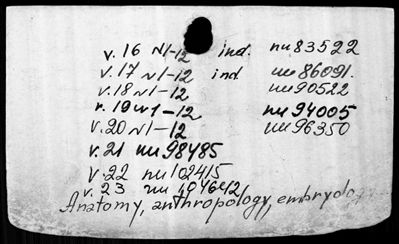 v. 16 N1-12 ind. nu 83522
v. 17 N1-12 ind nu 86091.
v. 18 N1-12 nu 90522
v. 19 N1-12 nu 94005
v. 20 N1-12 nu 96350
v. 21 nu 98485
v. 22 nu 102415
v. 23 nu 104642
Anatomy, anthropology, embryology